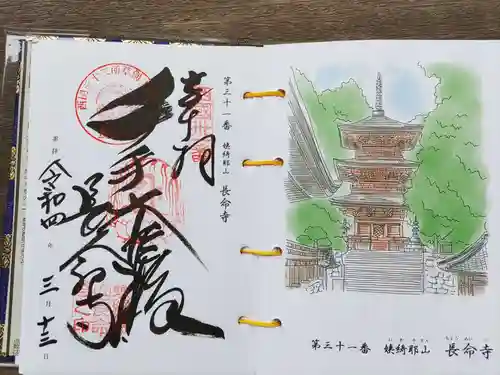 第三十一番 姨綺耶山 長命寺
奉拝
千手大悲殿
長命寺
令和四年三月十三日
第三十一番 姨綺耶山 長命寺